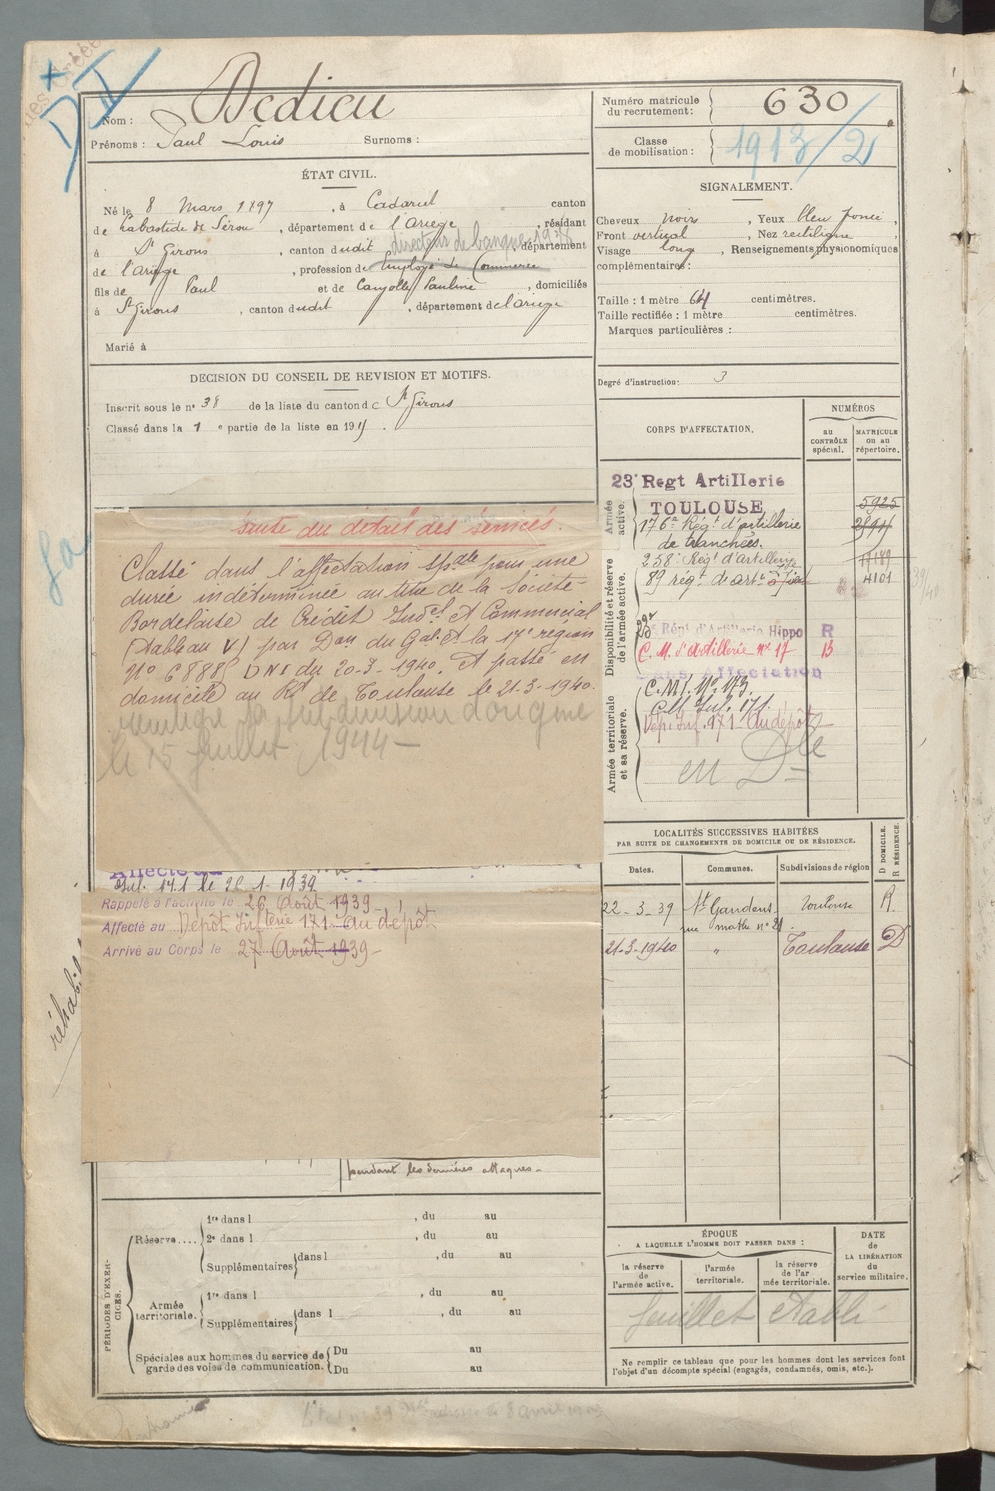 Nom : Dedieu
Prénoms : Paul Louis Surnoms :
Numéro matricule du recrutement : 630
Classe de mobilisation : 1913/2
ÉTAT CIVIL.
Né le 8 Mars 1897, à Cadarcet canton
de Labastide de Sérou, département de l'Ariège, résidant
à St Girons, canton dudit directeur de banque 1938 département
de l'Ariège, profession de Employé de Commerce
fils de Paul et de Canjolle Pauline, domiciliés
à St Girons, canton dudit, département de l'ariège
Marié à
SIGNALEMENT.
Cheveux noir, Yeux bleu foncé,
Front vertical, Nez rectiligne,
Visage long, Renseignements physionomiques
complémentaires :
Taille : 1 mètre 64 centimètres.
Taille rectifiée : 1 mètre centimètres.
Marques particulières :
Degré d'instruction : 3
DECISION DU CONSEIL DE REVISION ET MOTIFS.
Inscrit sous le n° 38 de la liste du canton de St Girons
Classé dans la 1e partie de la liste en 191
CORPS D'AFFECTATION.
NUMÉROS
au CONTRÔLE spécial.
MATRICULE ou au répertoire.
Armée active.
23e Regt Artillerie
TOULOUSE 5925
176e Régt d'artillerie
de tranchées.
Disponibilité et réserve de l'armée active.
258e Régt d'artillerie
89 régt de arte à pied 4101
Régt d'Artillerie Hippo R
C. M. d'Artillerie n° 17 13
Sans affectation
Armée territoriale et sa réserve.
C.M.I. N° 173.
C.M. Inf. 171.
Dépt Inf. 171 - Au dépôt
en Dle
suite du détail des services.
Classé dans l'affectation spale pour une
durée indéterminée au titre de la Société
Bordelaise de Crédit Indel et Commercial
(Tableau V) par Don du Gal Ct la 17e région
N° 6888 DNE du 20-3-1940. et passé en
domicile au Rt de Toulouse le 21-3-1940.
subdivision d'origine
le 15 Juillet 1944 -
Affecté au
Inf. 171 le 1939
Rappelé à l'activité le 26 Août 1939
Affecté au Dépôt Infterie 171 - Au dépôt
Arrivé au Corps le 27 Août 1939 -
pendant les dernières attaques -
LOCALITÉS SUCCESSIVES HABITÉES
PAR SUITE DE CHANGEMENTS DE DOMICILE OU DE RÉSIDENCE.
Dates. Communes. Subdivisions de région D DOMICILE. R RÉSIDENCE.
22-3-39 St Gaudens Toulouse R.
21-3-1940 " Toulouse D
PÉRIODES D'EXERCICES.
Réserve.... 1re dans l , du au
2e dans l , du au
Supplémentaires dans l , du au
Armée territoriale. 1re dans l , du au
Supplémentaires dans l , du au
Spéciales aux hommes du service de garde des voies de communication. Du au
Du au
ÉPOQUE
A LAQUELLE L'HOMME DOIT PASSER DANS :
la réserve de l'armée active.
l'armée territoriale.
la réserve de l'armée territoriale.
DATE de LA LIBÉRATION du service militaire.
feuillet établi
Ne remplir ce tableau que pour les hommes dont les services font
l'objet d'un décompte spécial (engagés, condamnés, omis, etc.).